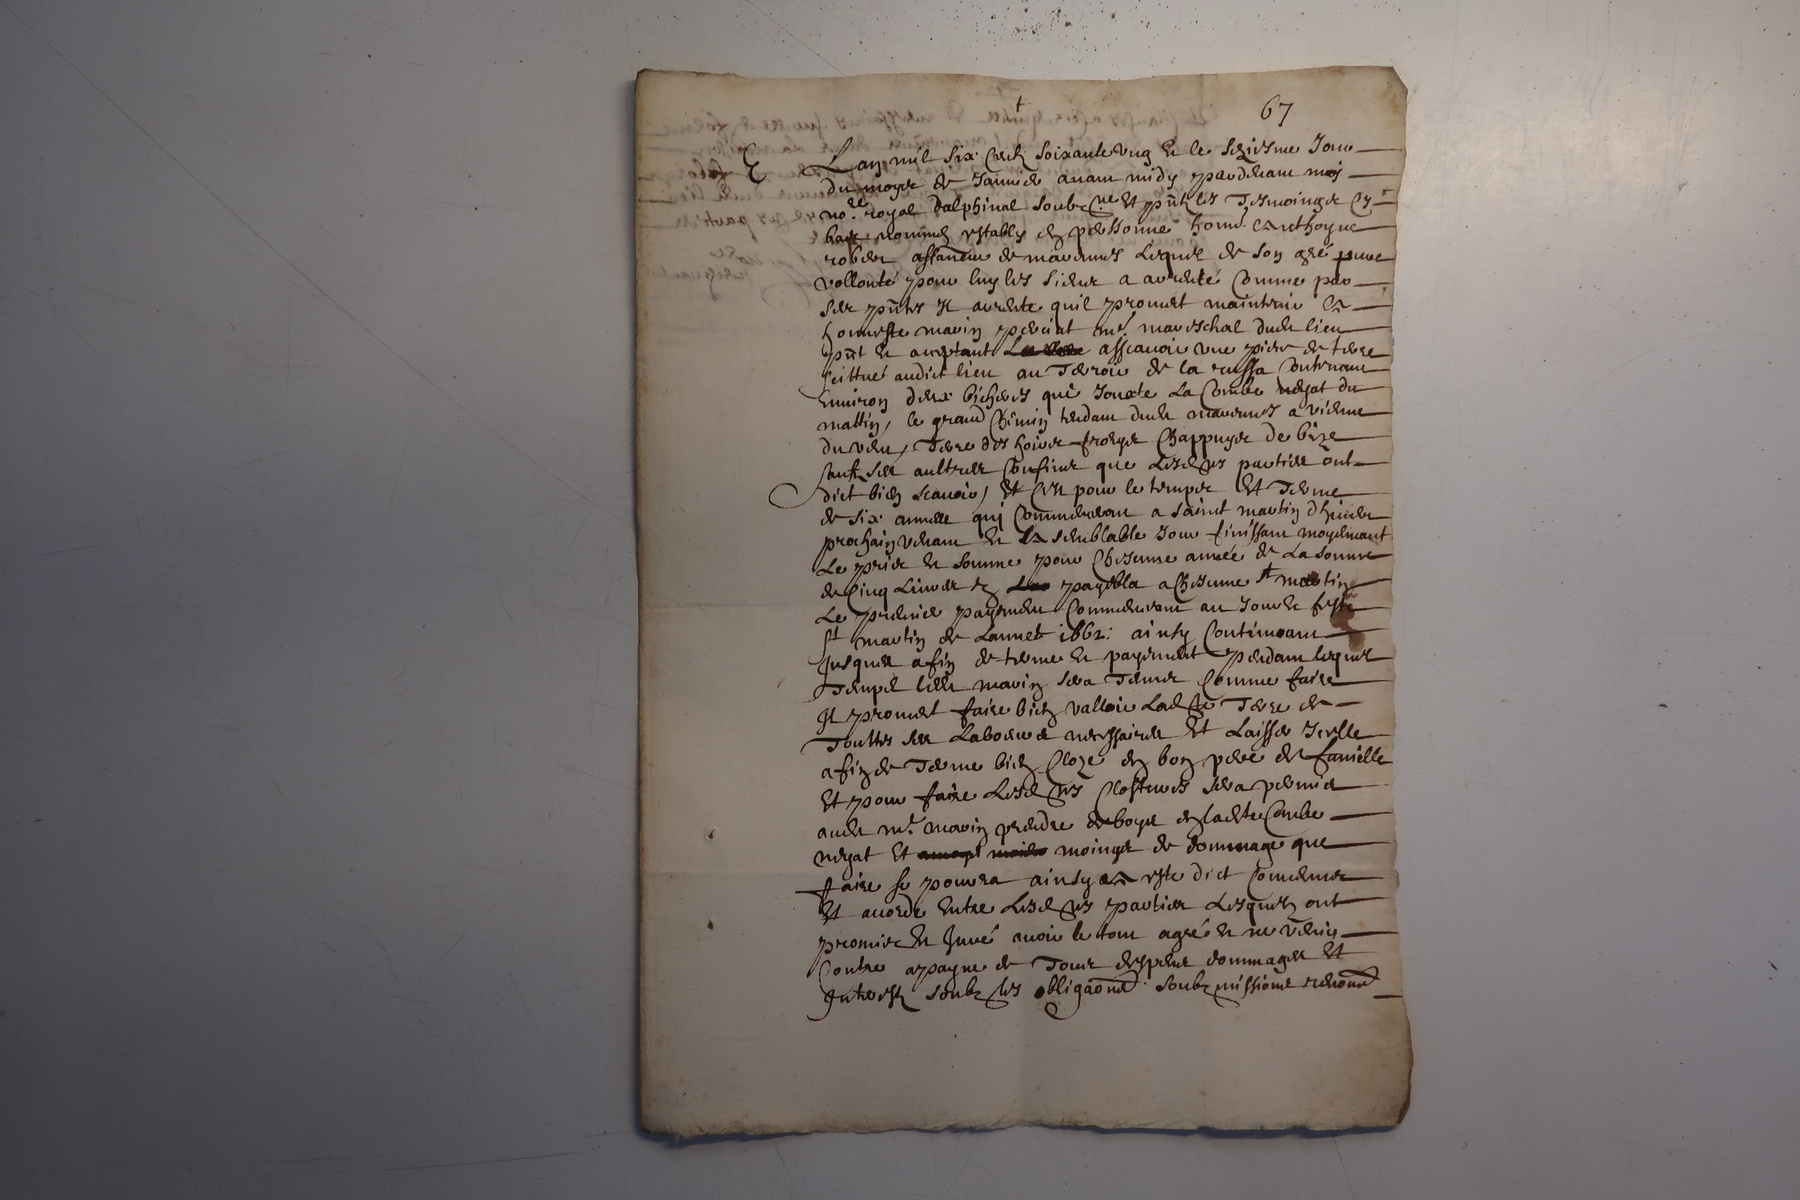 67
Lan mil six cens soixante ung et le seziesme Jour
du moys de Janvier avant midy pardevant moy
no.re royal dalphinal soubz.ne et pñt les Tesmoingz cy
bas nommes estably en personne hon. Anthoyne
rober de mavennes lequel de son gré pure
vollonté pour luy les siens a arenté comme par
ses pñtes Il arente quil promet maintenir a
honneste marin me. mareschal dudt lieu
pñt et aceptant assavoir une piece de terre
scittué audict lieu au Terroir de la contenant
Environ deux bicheres qui Jouxte La Combe du
mattin, le grand Chemin tendant dudt mavennes a vienne
du vent, Terre des hoirs Chappuys de bize
sauf ses aultres Confins que Lesdtes parties ont
dict bien scavoir, Et Cest pour le temps Et Terme
de six annes qui Commenceront a sainct martin dhiver
prochain venant et a semblable Jour finissant moyenant
Le pris et somme pour Chescune année de La somme
de Cinq Livres payable a Chescune st martin
Le premier payement Commencera au Jour et feste
st martin de Lannee 1662: ainsy Continuant
Jusques a fin de terme et payement pendant lequel
Temps ledt marin sera Tenu Comme faire
Il promet faire bien valloir Ladte Terre de
Touttes ses Labeurs necessaires Et Laisser Icelle
a fin de Terme bien Cloze en bon pere de famille
Et pour faire Lesdtes Clostures sera permis
audt me. marin prendre de boys en ladte Combe
Et moings de dommage que
faire se poura ainsy a este dict Convenu
Et acordé Entre Lesdtes parties Lesquels ont
promis et Juré avoir le tout agré et ne venir
Contre a payne de Tous despens dommages Et
Interestz soubz les obligaons soubzmissions renonõ